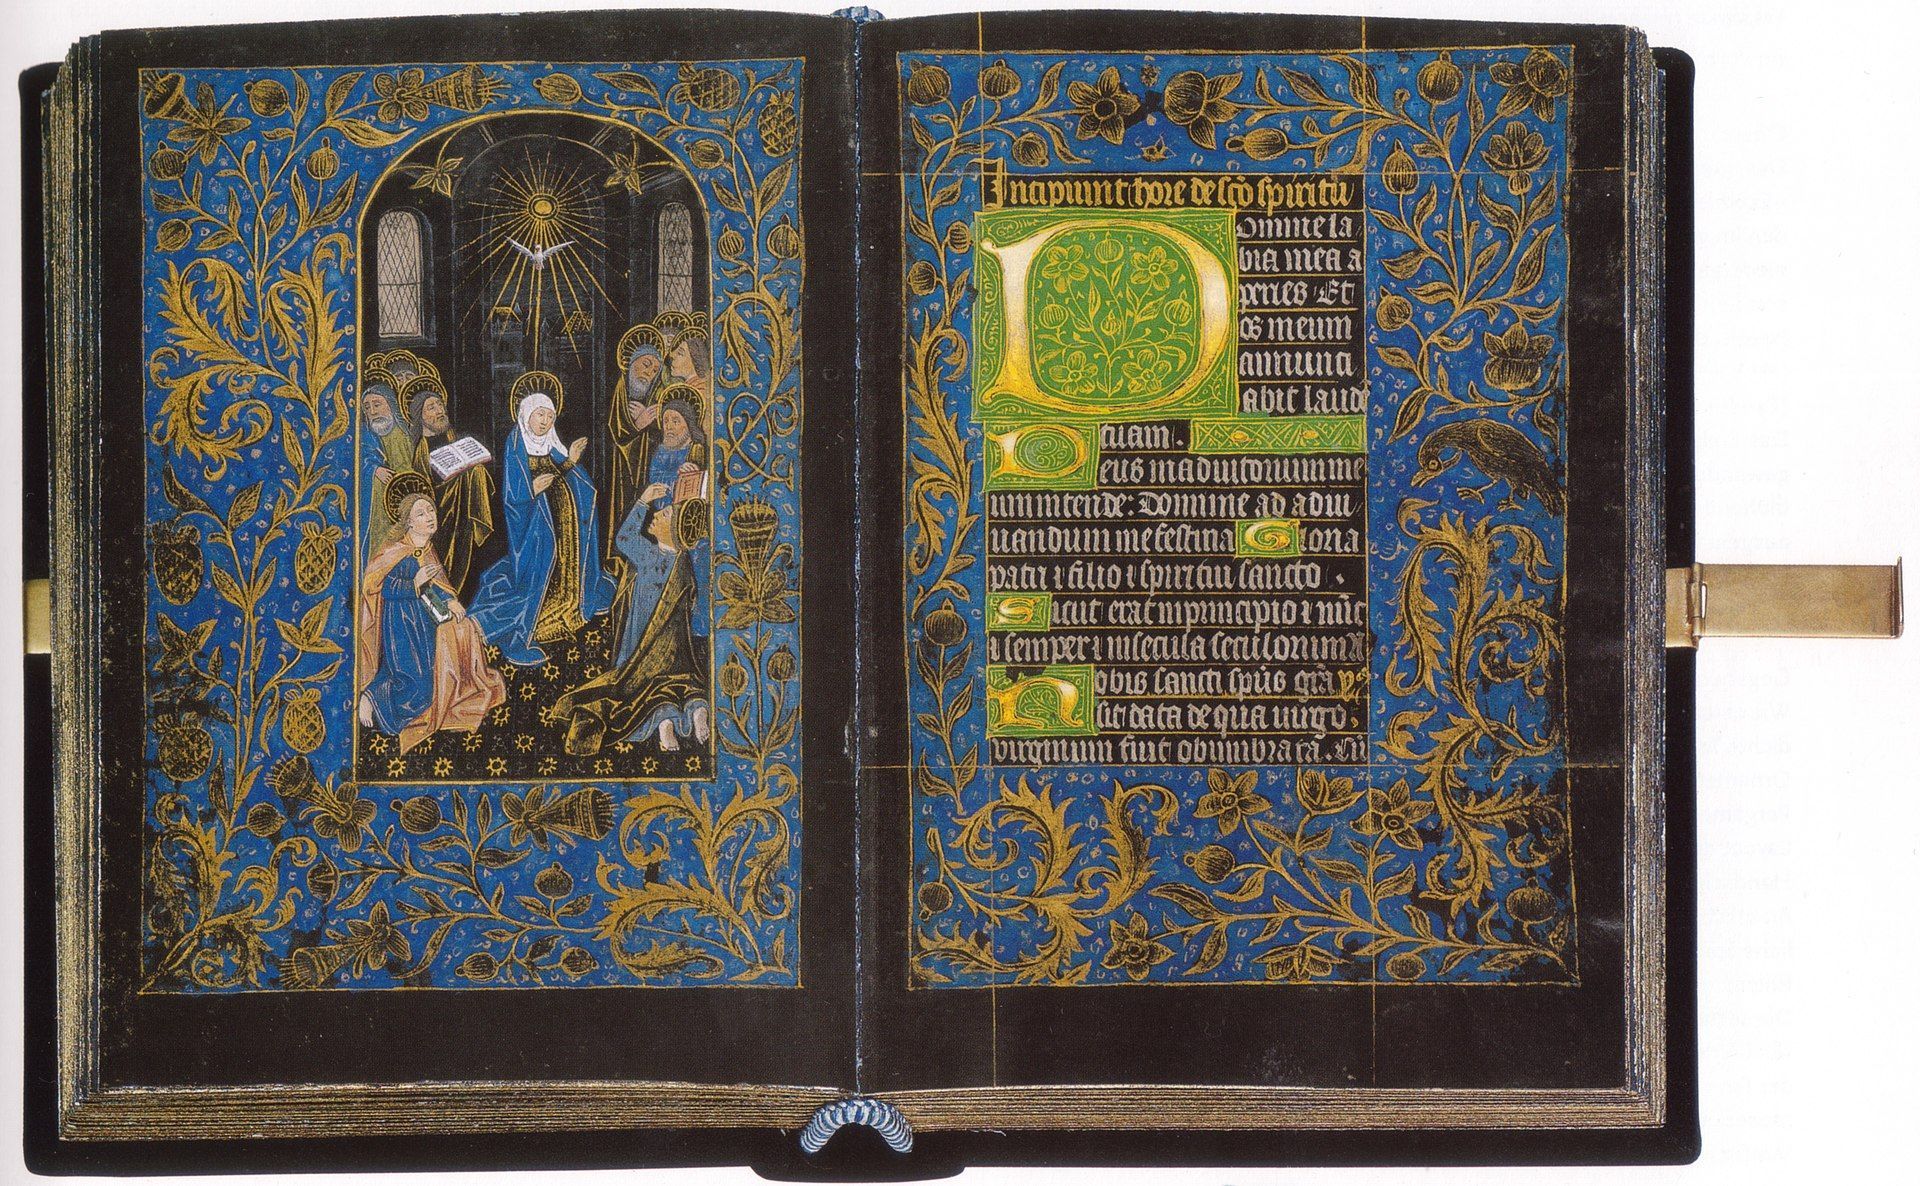 Incipiunt hore de sco spiritu
Domine la
bia mea a
peries Et
os meum
annunti
abit laude
tuam .
Deus in adiutorium me
um intende: Domine ad adiu
uandum me festina Gloria
patri ⁊ filio ⁊ spiritui sancto .
Sicut erat in principio ⁊ nūc
⁊ semper ⁊ in secula seculorum A
Nobis sancti spūs grā ys
sit data de qua uirgo .
virginum fuit obumbrata . Cū